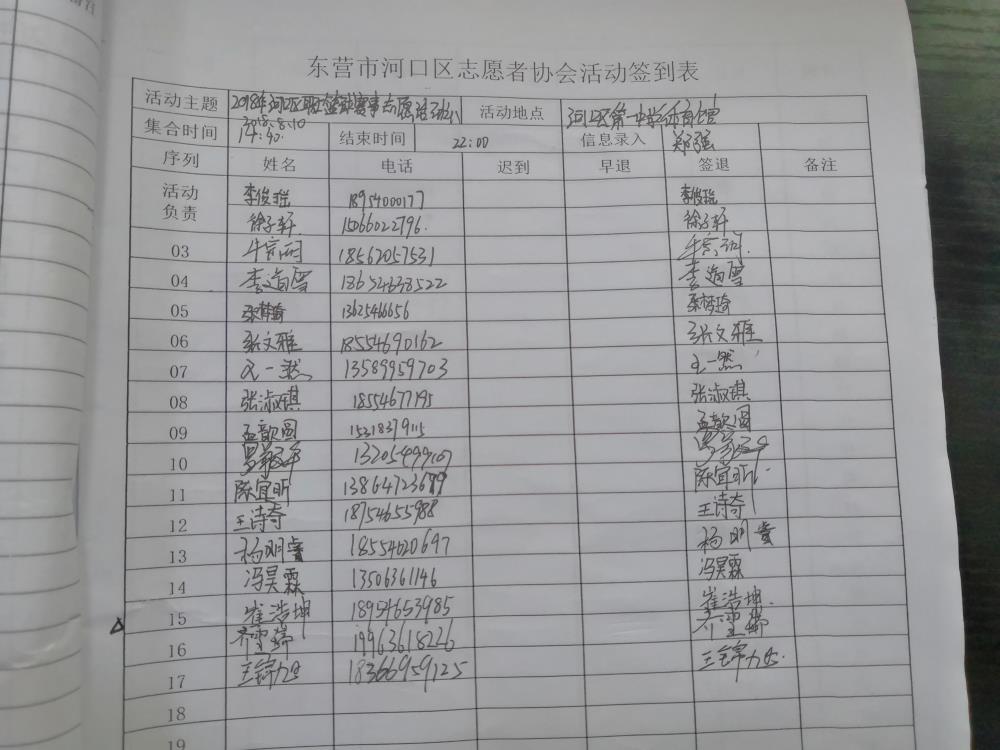 东营市河口区志愿者协会活动签到表
活动主题 2018年河口区 篮球赛事志愿活动 活动地点 河口区第一中学体育馆
集合时间 2018.8.10 14:40 结束时间 22:00 信息录入 郑强
序列 姓名 电话 迟到 早退 签退 备注
活动负责 李俊瑶 18954000177 李俊瑶
徐子轩 15066022796. 徐子轩
03 18562057531
04 李道雪 18654638522 李道雪
05 张梦琦 13625466656 张梦琦
06 张文雅 18554690162 张文雅
07 一然 13589959703 一然
08 张淑琪 18554677195 张淑琪
09 孟歆圆 15318379115 孟歆圆
10 13205499107
11 陈宜昕 13864723699 陈宜昕
12 王诗奇 18754655988 王诗奇
13 杨明 18554620697 杨明
14 冯昊霖 13506361146 冯昊霖
15 崔浩坤 18954653985 崔浩坤
16 齐雪 19963618226 齐雪
17 王 18366959125 王
18
19